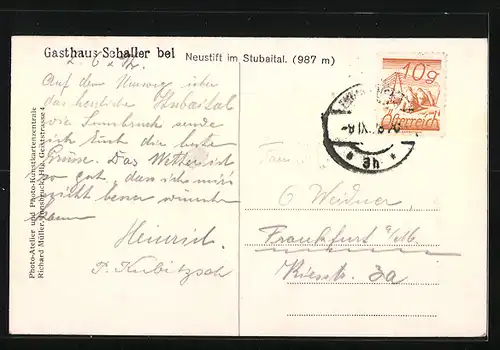 Gasthaus Schaller bei Neustift im Stubaital. (987 m)
Auf dem Umweg über
das herrliche Stubaital
Innsbruck sende
ich Euch die besten
Grüsse. Das Wetter ist
so gut, dass ich mir's
nicht besser wünschen
kann
Heinrich
P. Kubitzsch
Photo-Atelier und Photo-Kunstkartenzentrale
Richard Müller, Innsbruck-Htg.
10g
Österreich
G Weidner
Frankfurt a/M
Riesstr. 3a